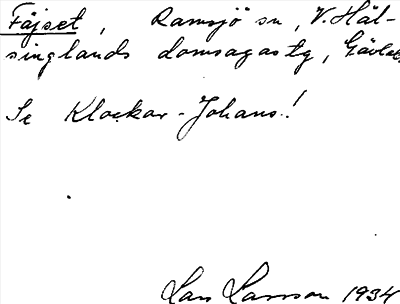 Fäjset, Ramsjö sn, V. Häl-
singlands domsagas tg, Gävleb.
Se Klockar-Johans!
Lars Larsson 1934